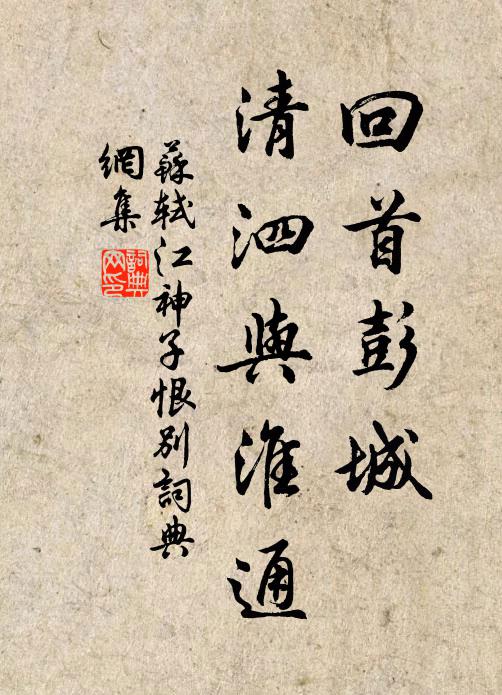 回首彭城
清泗與淮通
蘇軾江神子恨別詞典
網集
詞典
网印